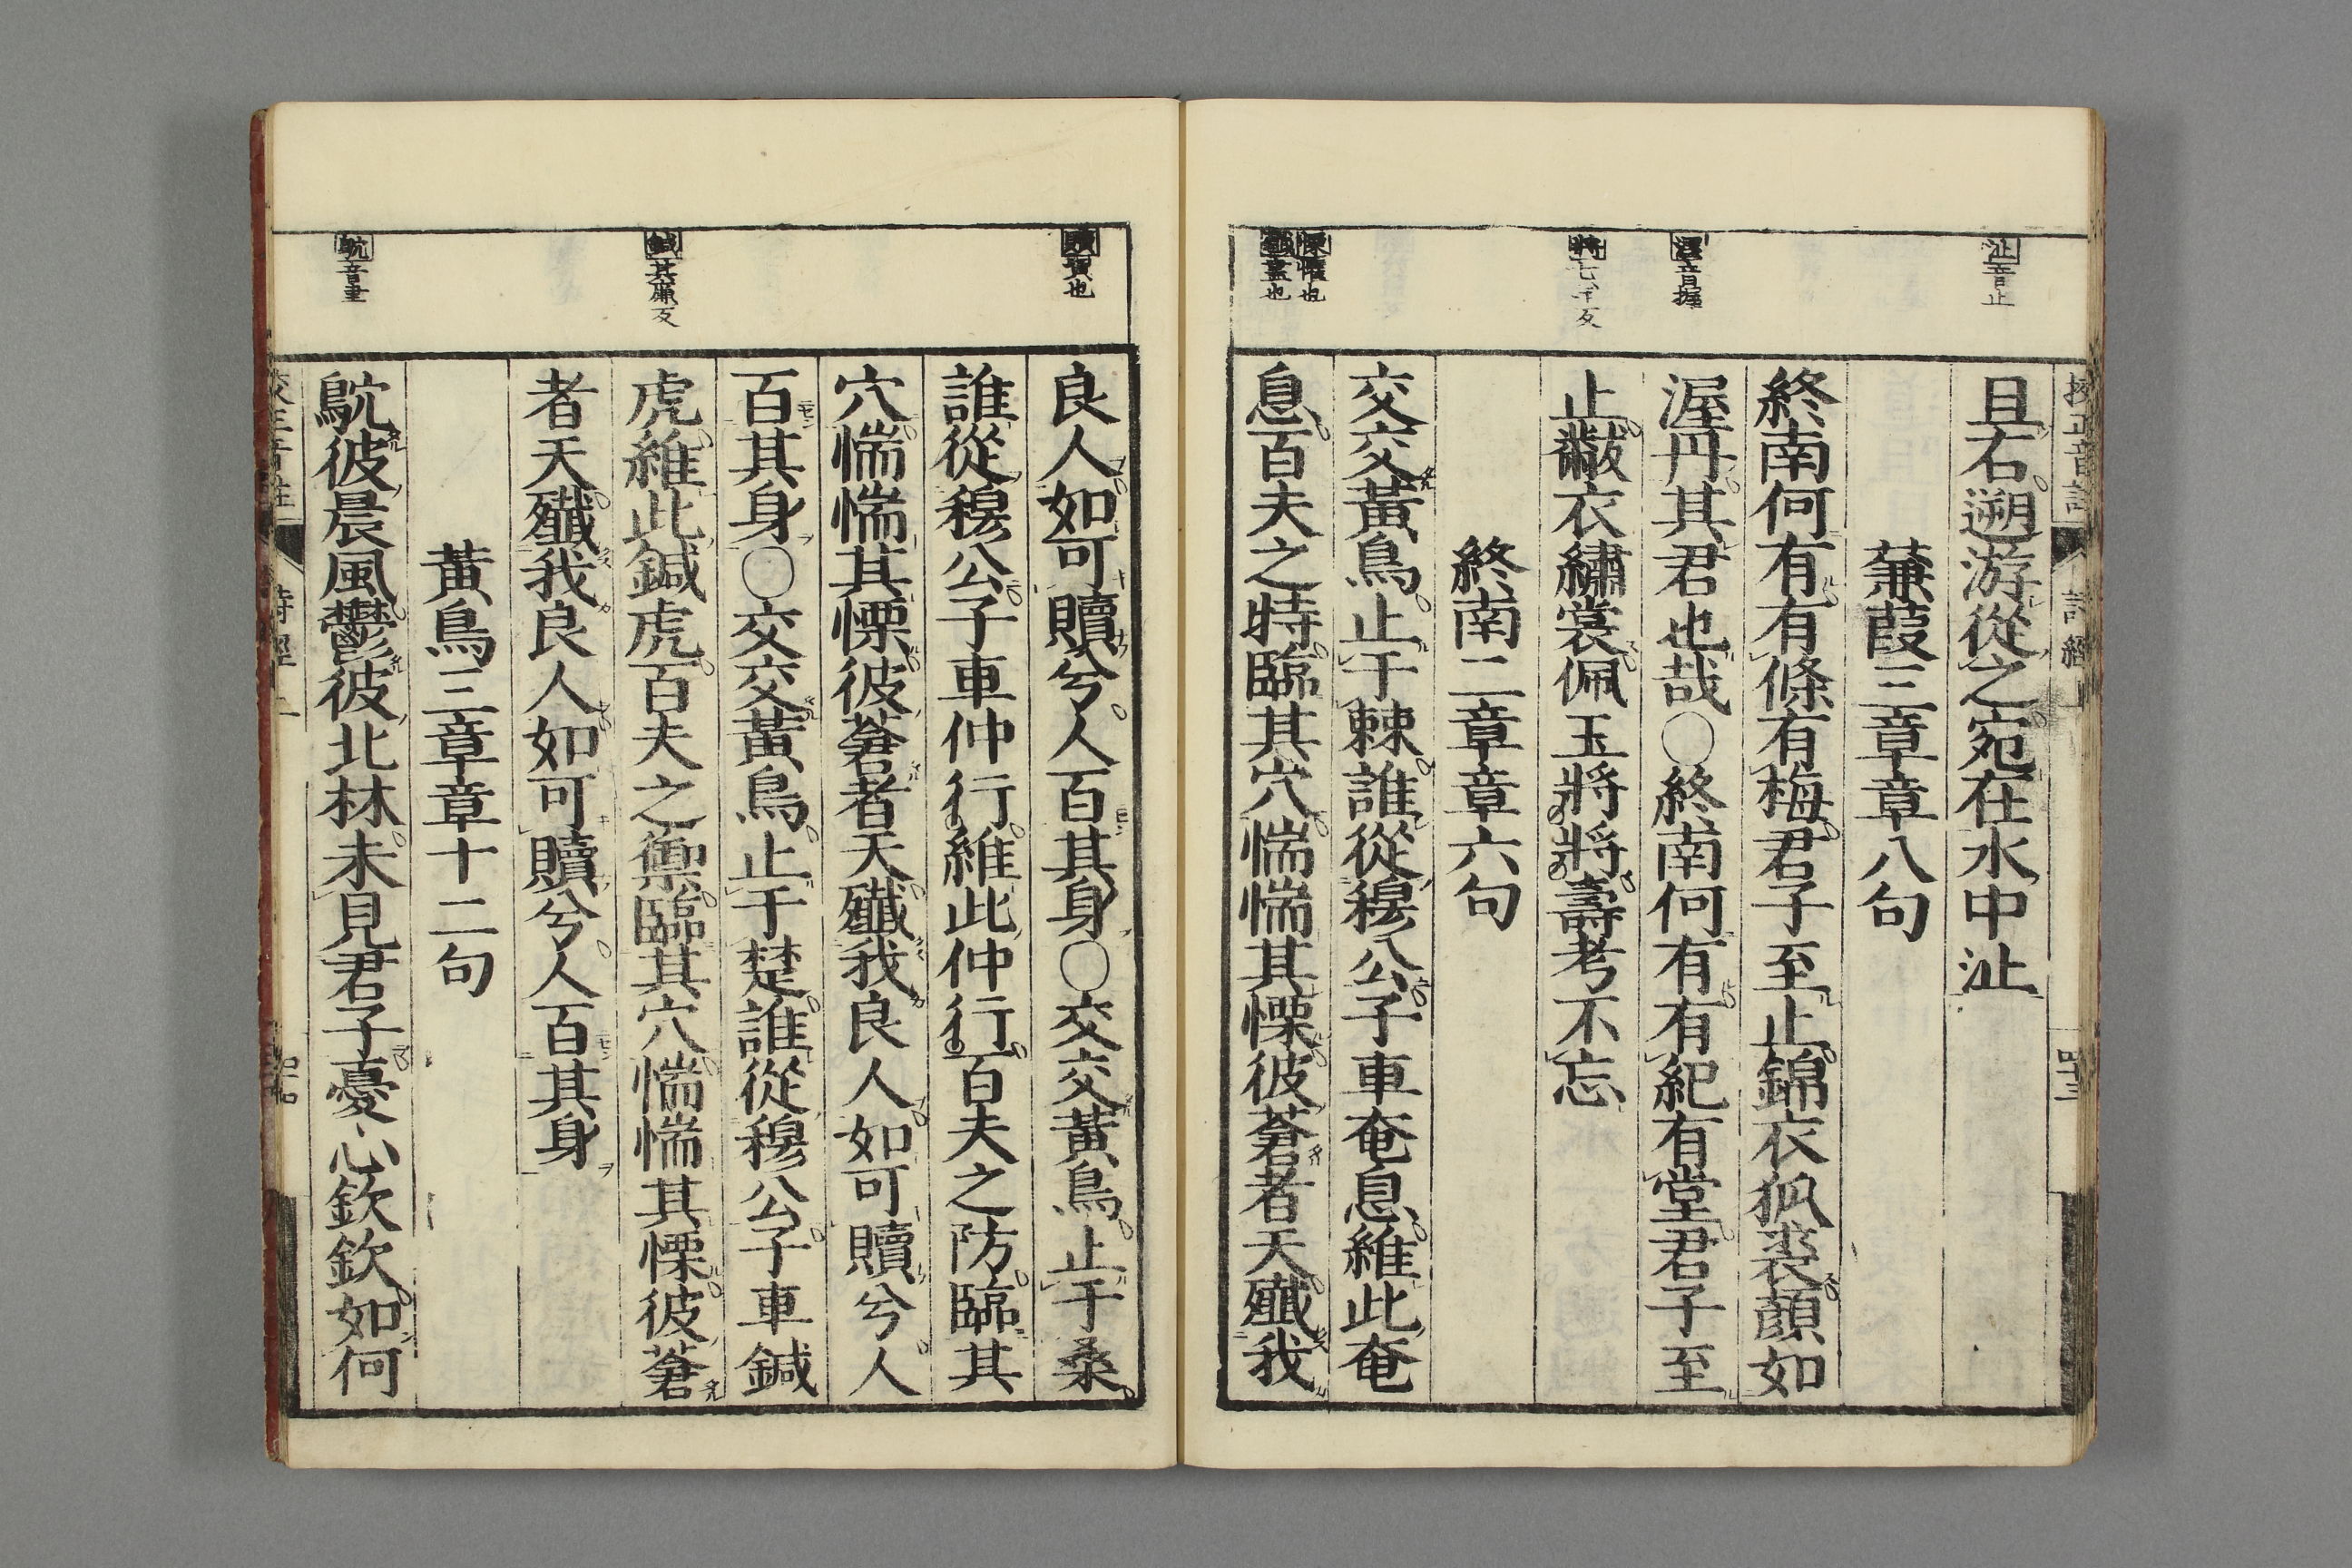 沚音止
渥音握
將七羊反
慄懼也
殲盡也
且右遡游從之宛在水中沚
蒹葭三章章八句
終南何有有條有梅君子至止錦衣狐裘顔如
渥丹其君也哉○終南何有有紀有堂君子至
止黻衣繡裳佩玉將將壽考不忘
終南二章章六句
交交黃鳥止于棘誰從穆公子車奄息維此奄
息百夫之特臨其穴惴惴其慄彼蒼者天殲我
贖貿也
鍼其廉反
鴥音聿
良人如可贖兮人百其身○交交黃鳥止于桑
誰從穆公子車仲行維此仲行百夫之防臨其
穴惴惴其慄彼蒼者天殲我良人如可贖兮人
百其身○交交黃鳥止于楚誰從穆公子車鍼
虎維此鍼虎百夫之禦臨其穴惴惴其慄彼蒼
者天殲我良人如可贖兮人百其身
黃鳥三章章十二句
鴥彼晨風鬱彼北林未見君子憂心欽欽如何